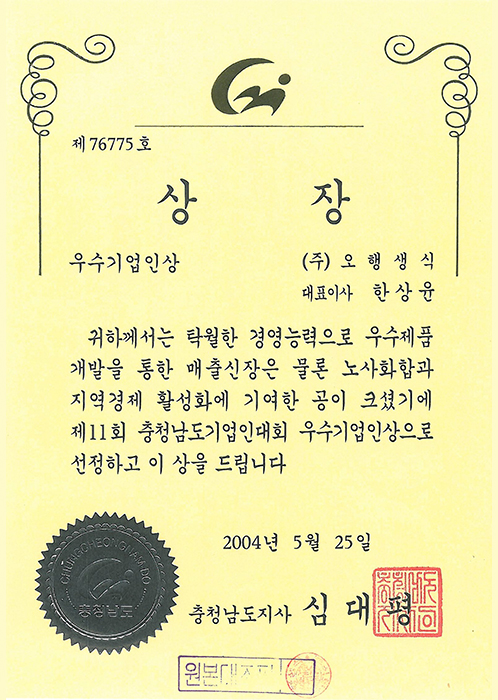 제 76775 호
상 장
우수기업인상
(주) 오 행 생 식
대표이사 한 상 윤
귀하께서는 탁월한 경영능력으로 우수제품
개발을 통한 매출신장은 물론 노사화합과
지역경제 활성화에 기여한 공이 크셨기에
제11회 충청남도기업인대회 우수기업인상으로
선정하고 이 상을 드립니다
2004년 5월 25일
CHUNGCHEONGNAM-DO
충청남도
충청남도지사 심 대 평
원본대조필